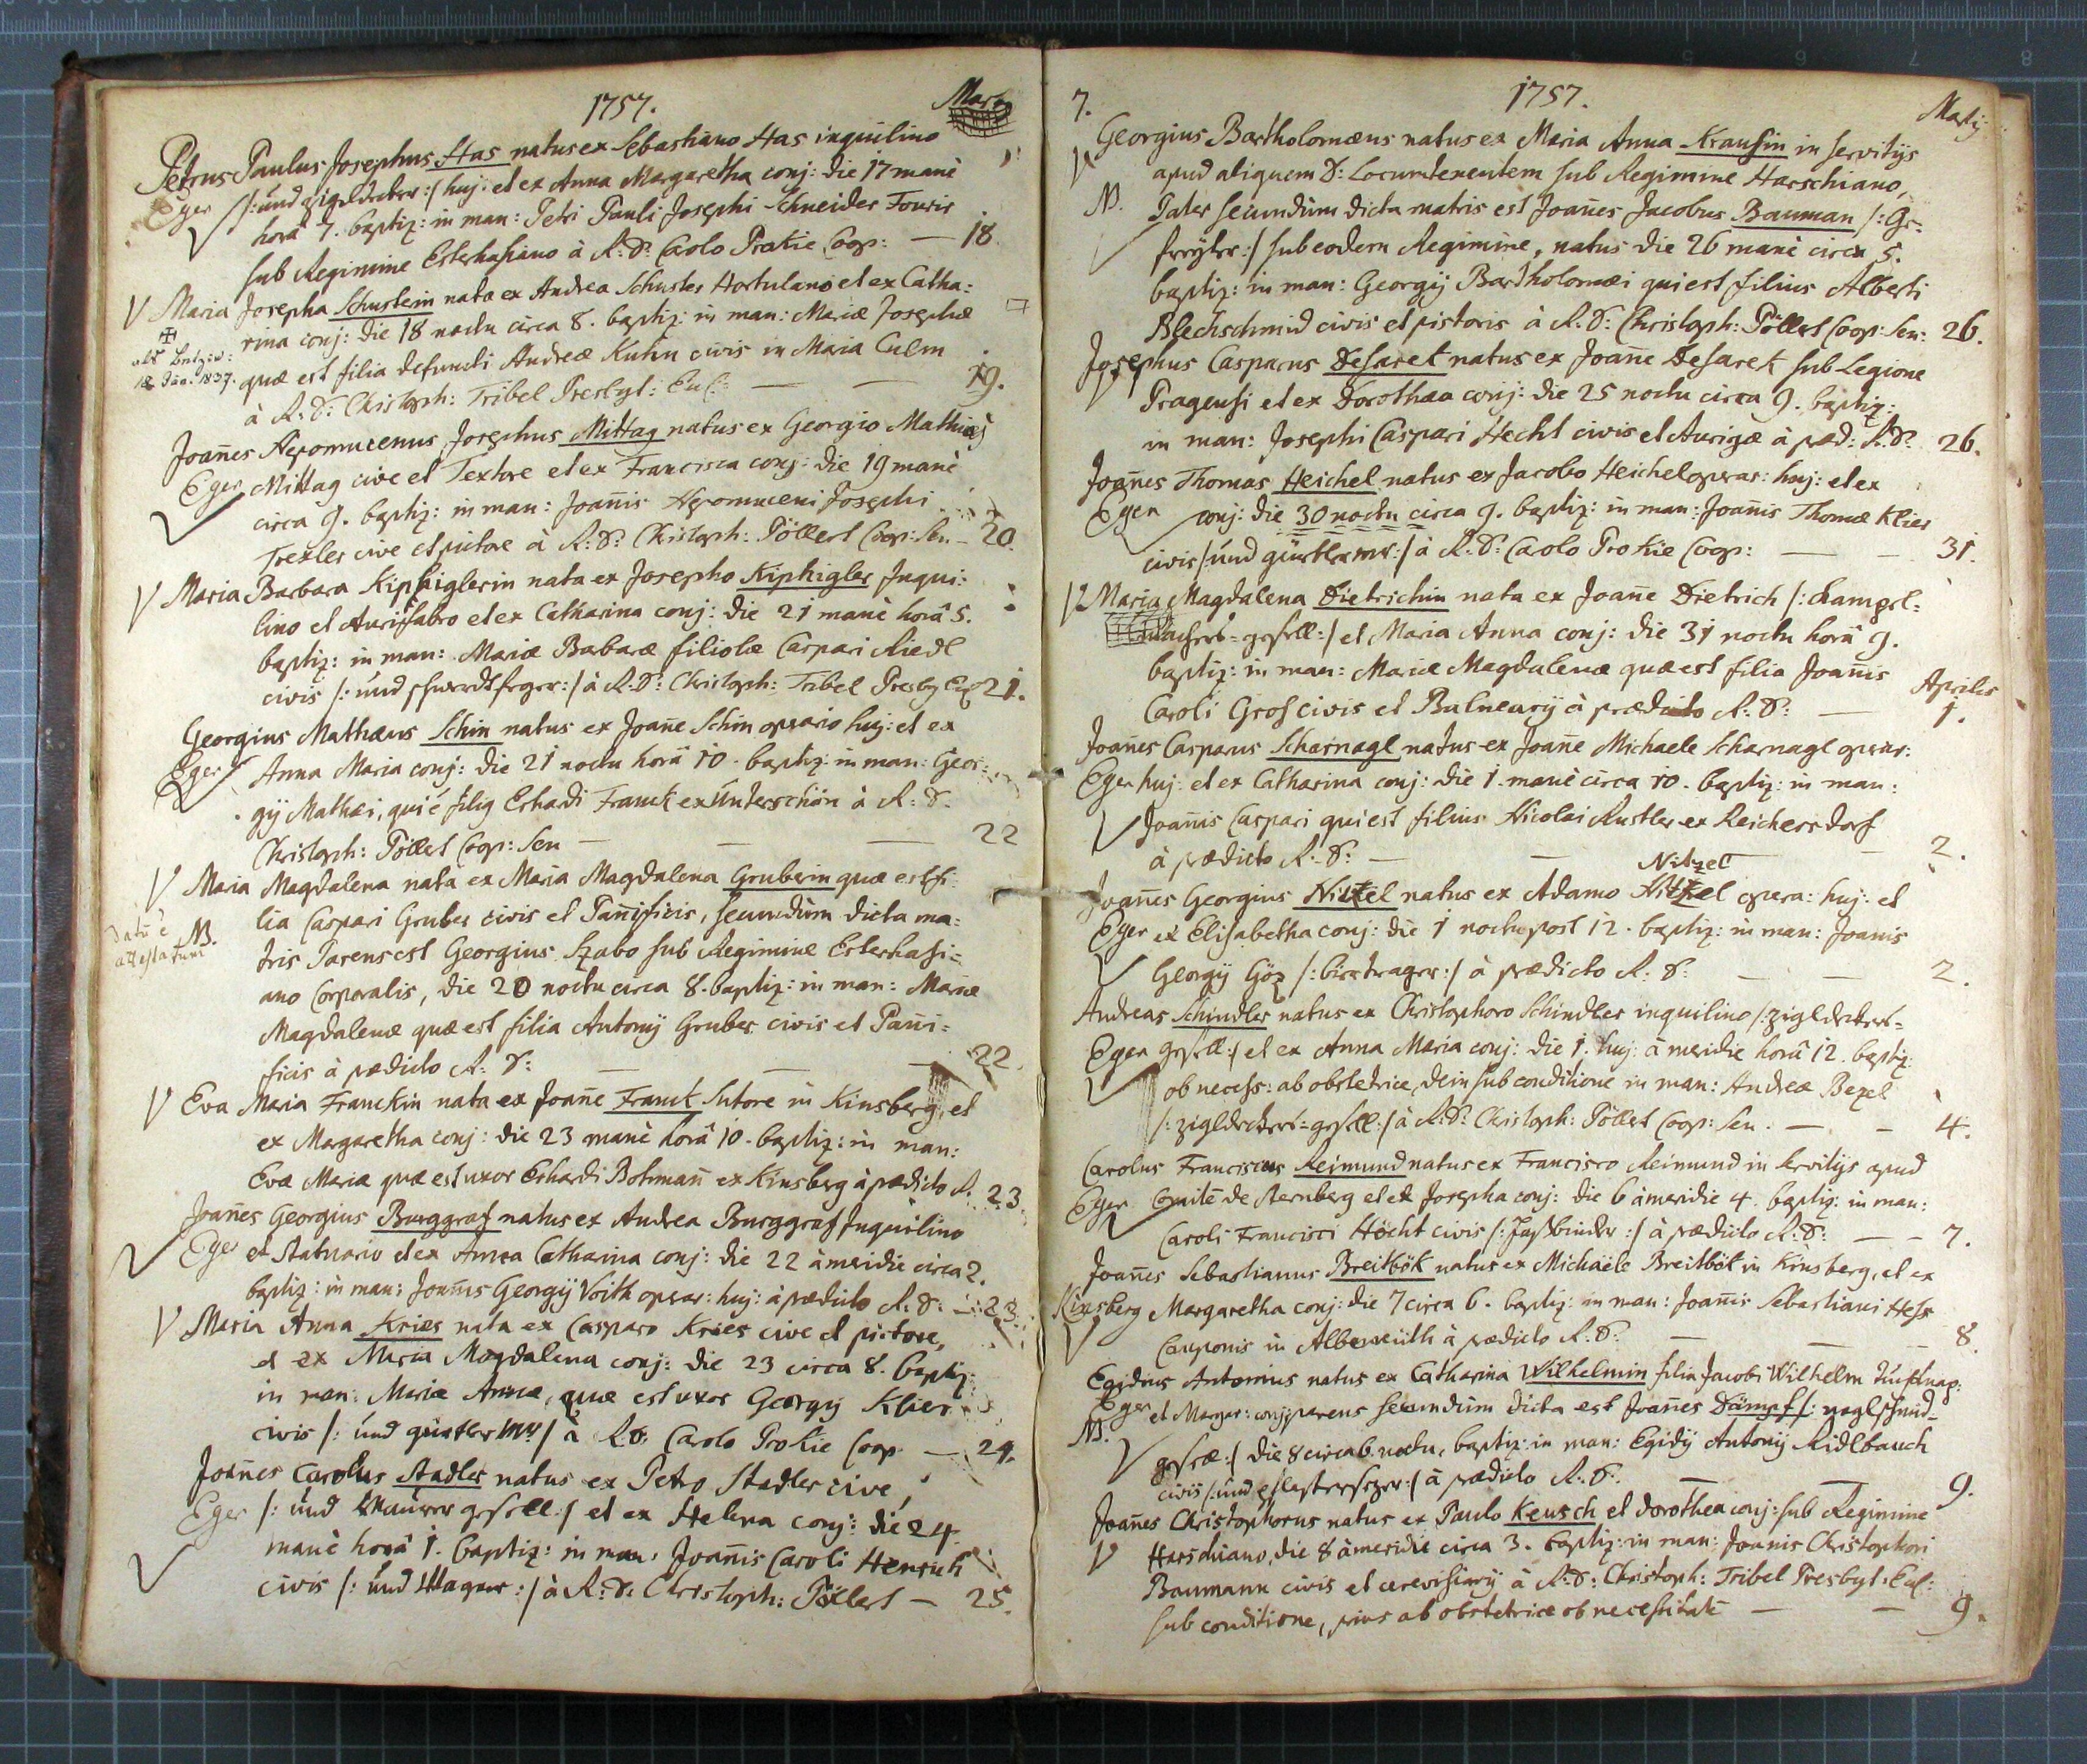 1757.
Martij
Petrus Paulus Josephus Has natus ex Sebastiano Has inquilino
Eger /:und zigldeker:/ huj: et ex Anna Margaretha conj: die 17 manè
horâ 7. baptiz: in man: Petri Pauli Josephi Schneider Fourir
sub Regimine Esterhasiano à R:D: Carolo Prokie Coop: — 18.
Maria Josepha Schusterin nata ex Andrea Schuster Hortulano et ex Catha:
rina conj: die 18 noctu circa 8. baptiz: in man: Mariæ Josephæ
18 Jän. 1837. quæ est filia defuncti Andreæ Kuhn civis in Maria Culm
à R:D: Christoph: Tribel Presbyt: Eccl: — — 19.
Joan̄es Nepomucenus Josephus Mittag natus ex Georgio Mathia
Eger Mittag cive et Textore et ex Francisca conj: die 19 manè
circa 9. baptiz: in man: Joan̄is Nepomuceni Josephi
Trexler cive et pictore à R:D: Christoph: Pöllert Coop: Sen — 20.
Maria Barbara Kiphiglerin nata ex Josepho Kiphigler Inqui:
lino et Aurifabro et ex Catharina conj: die 21 manè horâ 5.
baptiz: in man: Mariæ Babaræ filiolæ Caspari Riedl
civis /:und schwerdtfeger:/ à R:D: Christoph: Tribel Presby Eccl 21.
Georgius Mathæus Schin natus ex Joan̄e Schin operario huj: et ex
Eger Anna Maria conj: die 21 noctu horâ 10. baptiz: in man: Geor:
gij Mathæi, qui é filiq Erhardi Franck ex Unterschön à R:D:
Christoph: Pöllert Coop: Sen — — — 22
Maria Magdalena nata ex Maria Magdalena Gruberin quæ est fi:
lia Caspari Gruber civis et Pan̄ificis, secundùm dicta ma:
datū é attestatum NB. tris Parens est Georgius Szabo sub Regimine Esterhasi=
ano Corporalis, die 20 noctu circa 8. baptiz: in man: Mariæ
Magdalenæ quæ est filia Antonij Gruber civis et Pan̄i=
ficis à prædicto R:D: — — — 22.
Eva Maria Franckin nata ex Joan̄e Franck Sutore in Kinsberg, et
ex Margaretha conj: die 23 manè horâ 10. baptiz: in man:
Evæ Mariæ quæ est uxor Erhardi Bohman̄ ex Kinsberg à prædicto R. 23.
Joan̄es Georgius Burggraf natus ex Andrea Burggraf Inquilino
Eger et Statuario et ex Anna Catharina conj: die 22 à meridie circa 2.
baptiz: in man: Joan̄is Georgij Voith operar: huj: à prædicto R:D: — 23.
Maria Anna Kries nata ex Casparo Kries cive et pictore,
et ex Maria Magdalena conj: die 23 circa 8. baptiz:
in man: Mariæ Annæ, quæ est uxor Georgij Klier
civis /: und gürtler Mr:/ à R:D: Carolo Prokie Coop. — 24.
Joan̄es Carolus Stadler natus ex Petro Stadler cive,
Eger /: und Maurer gesell:/ et ex Helena conj: die 24.
manè horâ 1. baptiz: in man: Joan̄is Caroli Henrich
civis /: und Wagner:/ à R:D: Christoph: Pöllert — 25.
7.
1757.
Martij
Georgius Bartholomæus natus ex Maria Anna Krausin in servitijs
apud aliquem D: Locumtenentem sub Regimine Harschiano,
NB. Pater secundùm dicta matris est Joan̄es Jacobus Bauman /:Ge=
freyter:/ sub eodem Regimine, natus die 26 manè circa 5.
baptiz: in man: Georgij Bartholomæi qui est filius Alberti
Blechschmid civis et pistoris à R:D: Christoph: Pöllert Coop: Sen: 26.
Josephus Casparus Desarek natus ex Joan̄e Desarek sub Legione
Pragensi et ex Dorothæa conj: die 25 noctu circa 9. baptiz:
in man: Josephi Caspari Hecht civis et Aurigæ à præd: R:D: 26.
Joan̄es Thomas Heichel natus ex Jacobo Heichel operar: huj: et ex
Eger conj: die 30 noctu circa 9. baptiz: in man: Joan̄is Thomæ Klier
civis /:und gürtler mr:/ à R:D: Carolo Prokie Coop: — — 31.
Maria Magdalena Dietrichin nata ex Joan̄e Dietrich /:
gesell:/ et Maria Anna conj: die 31 noctu horâ 9.
baptiz: in man: Mariæ Magdalenæ quæ est filia Joan̄is
Aprilis
Caroli Gros civis et Balnearij à prædicto R:D: — 1.
Joan̄es Casparus Scharnagl natus ex Joan̄e Michaele Scharnagl operar:
Eger huj: et ex Catharina conj: die 1. manè circa 10. baptiz: in man:
Joan̄is Caspari qui est filius Nicolai Rustler ex Reichersdorf
à prædicto R:D: — — — 2.
Nitzel
Joan̄es Georgius Nitzel natus ex Adamo Nitzel opera: huj: et
Eger ex Elisabetha conj: die 1 nocte post 12. baptiz: in man: Joanis
Georgij Göz /:biertrager:/ à prædicto R:D: — — 2.
Andreas Schindler natus ex Christophoro Schindler inquilino /:zigldekers=
Eger gesell:/ et ex Anna Maria conj: die 1. huj: à meridie horâ 12. baptiz:
ob necess: ab obstetrice, dein sub conditione in man: Andreæ Bezel
/:zigldekers=gesell:/ à R:D: Christoph: Pöllert Coop: Sen. — — 4.
Carolus Franciscus Reimund natus ex Francisco Reimund in servitijs apud
Eger Comite de Sternberg et ex Josepha conj: die 6 à meridie 4. baptiz: in man:
Caroli Francisci Höcht civis /:Faßbinder:/ à prædicto R:D: — — 7.
Joan̄es Sebastianus Breitbök natus ex Michaële Breitbök in Kinsberg, et ex
Kinsberg Margaretha conj: die 7 circa 6. baptiz: in man: Joan̄is Sebastiani Hess
Cauponis in Albenreüth à prædicto R:D: — — — 8.
Egidius Antonius natus ex Catharina Wilhelmin filia Jacobi Wilhelm Tuchknap:
Eger et Margar: conj: parens secundùm dicta est Joan̄es Dämpf /: naglschmid=
NB. gesell:/ die 8 circa 6. noctu, baptiz: in man: Egidij Antonij Ridlbauch
civis /:und pflastersezer:/ à prædicto R:D: — — 9.
Joan̄es Christophorus natus ex Paulo Keusch et Dorothea conj: sub Regimine
Harschiano, die 8 à meridie circa 3. baptiz: in man: Joanis Christophori
Baumann civis et cerevisiarij à R:D: Christoph: Tribel Presbyt: Eccl:
sub conditione, prius ab obstetrice ob necessitatē — — 9.